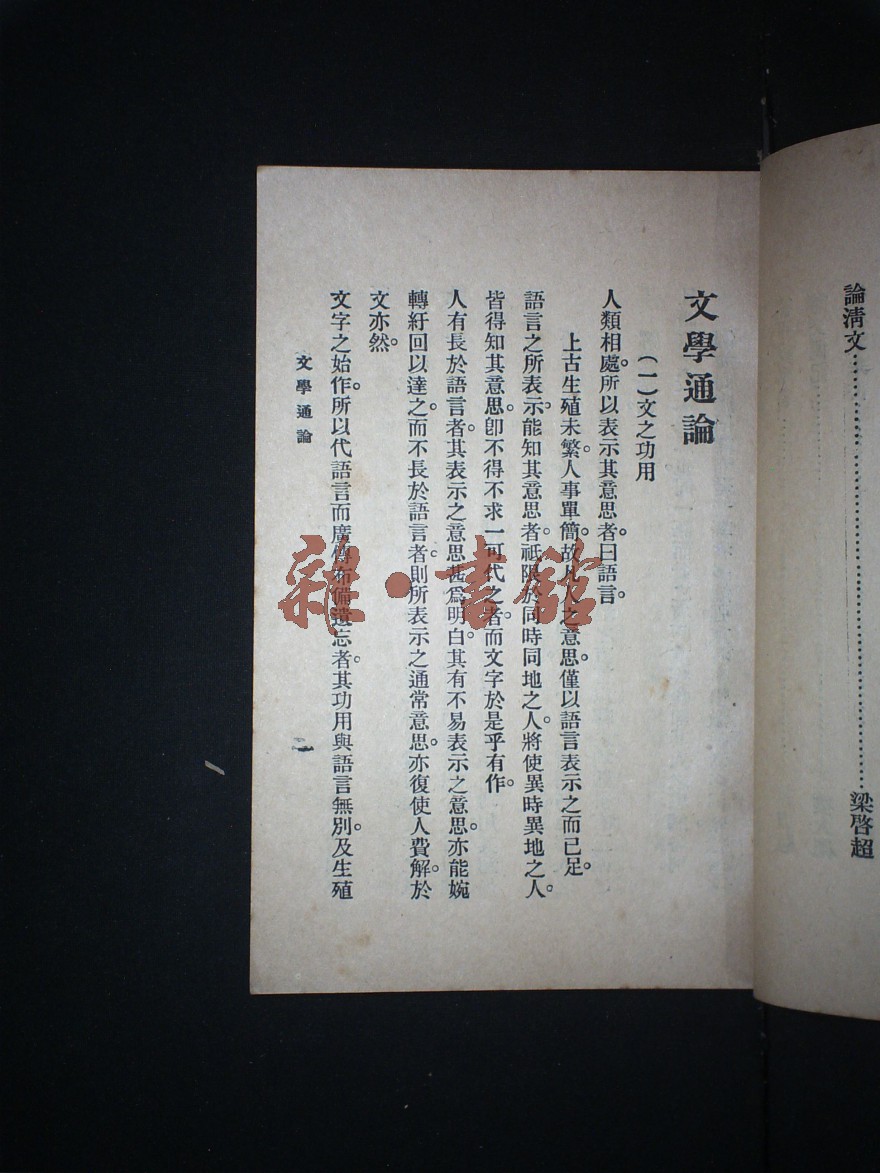 論清文……………………………………梁啓超
文學通論
(一)文之功用
人類相處。所以表示其意思者。曰語言。
上古生殖未繁。人事單簡。故凡人之意思。僅以語言表示之而已足。
語言之所表示。能知其意思者。祗限於同時同地之人。將使異時異地之人。
皆得知其意思。卽不得不求一可代之者。而文字於是乎有作。
人有長於語言者。其表示之意思甚爲明白。其有不易表示之意思。亦能婉
轉紆回以達之。而不長於語言者。則所表示之通常意思。亦復使人費解。於
文亦然。
文字之始作。所以代語言而廣傳布備遺忘者。其功用與語言無別。及生殖
文學通論
雜·書館